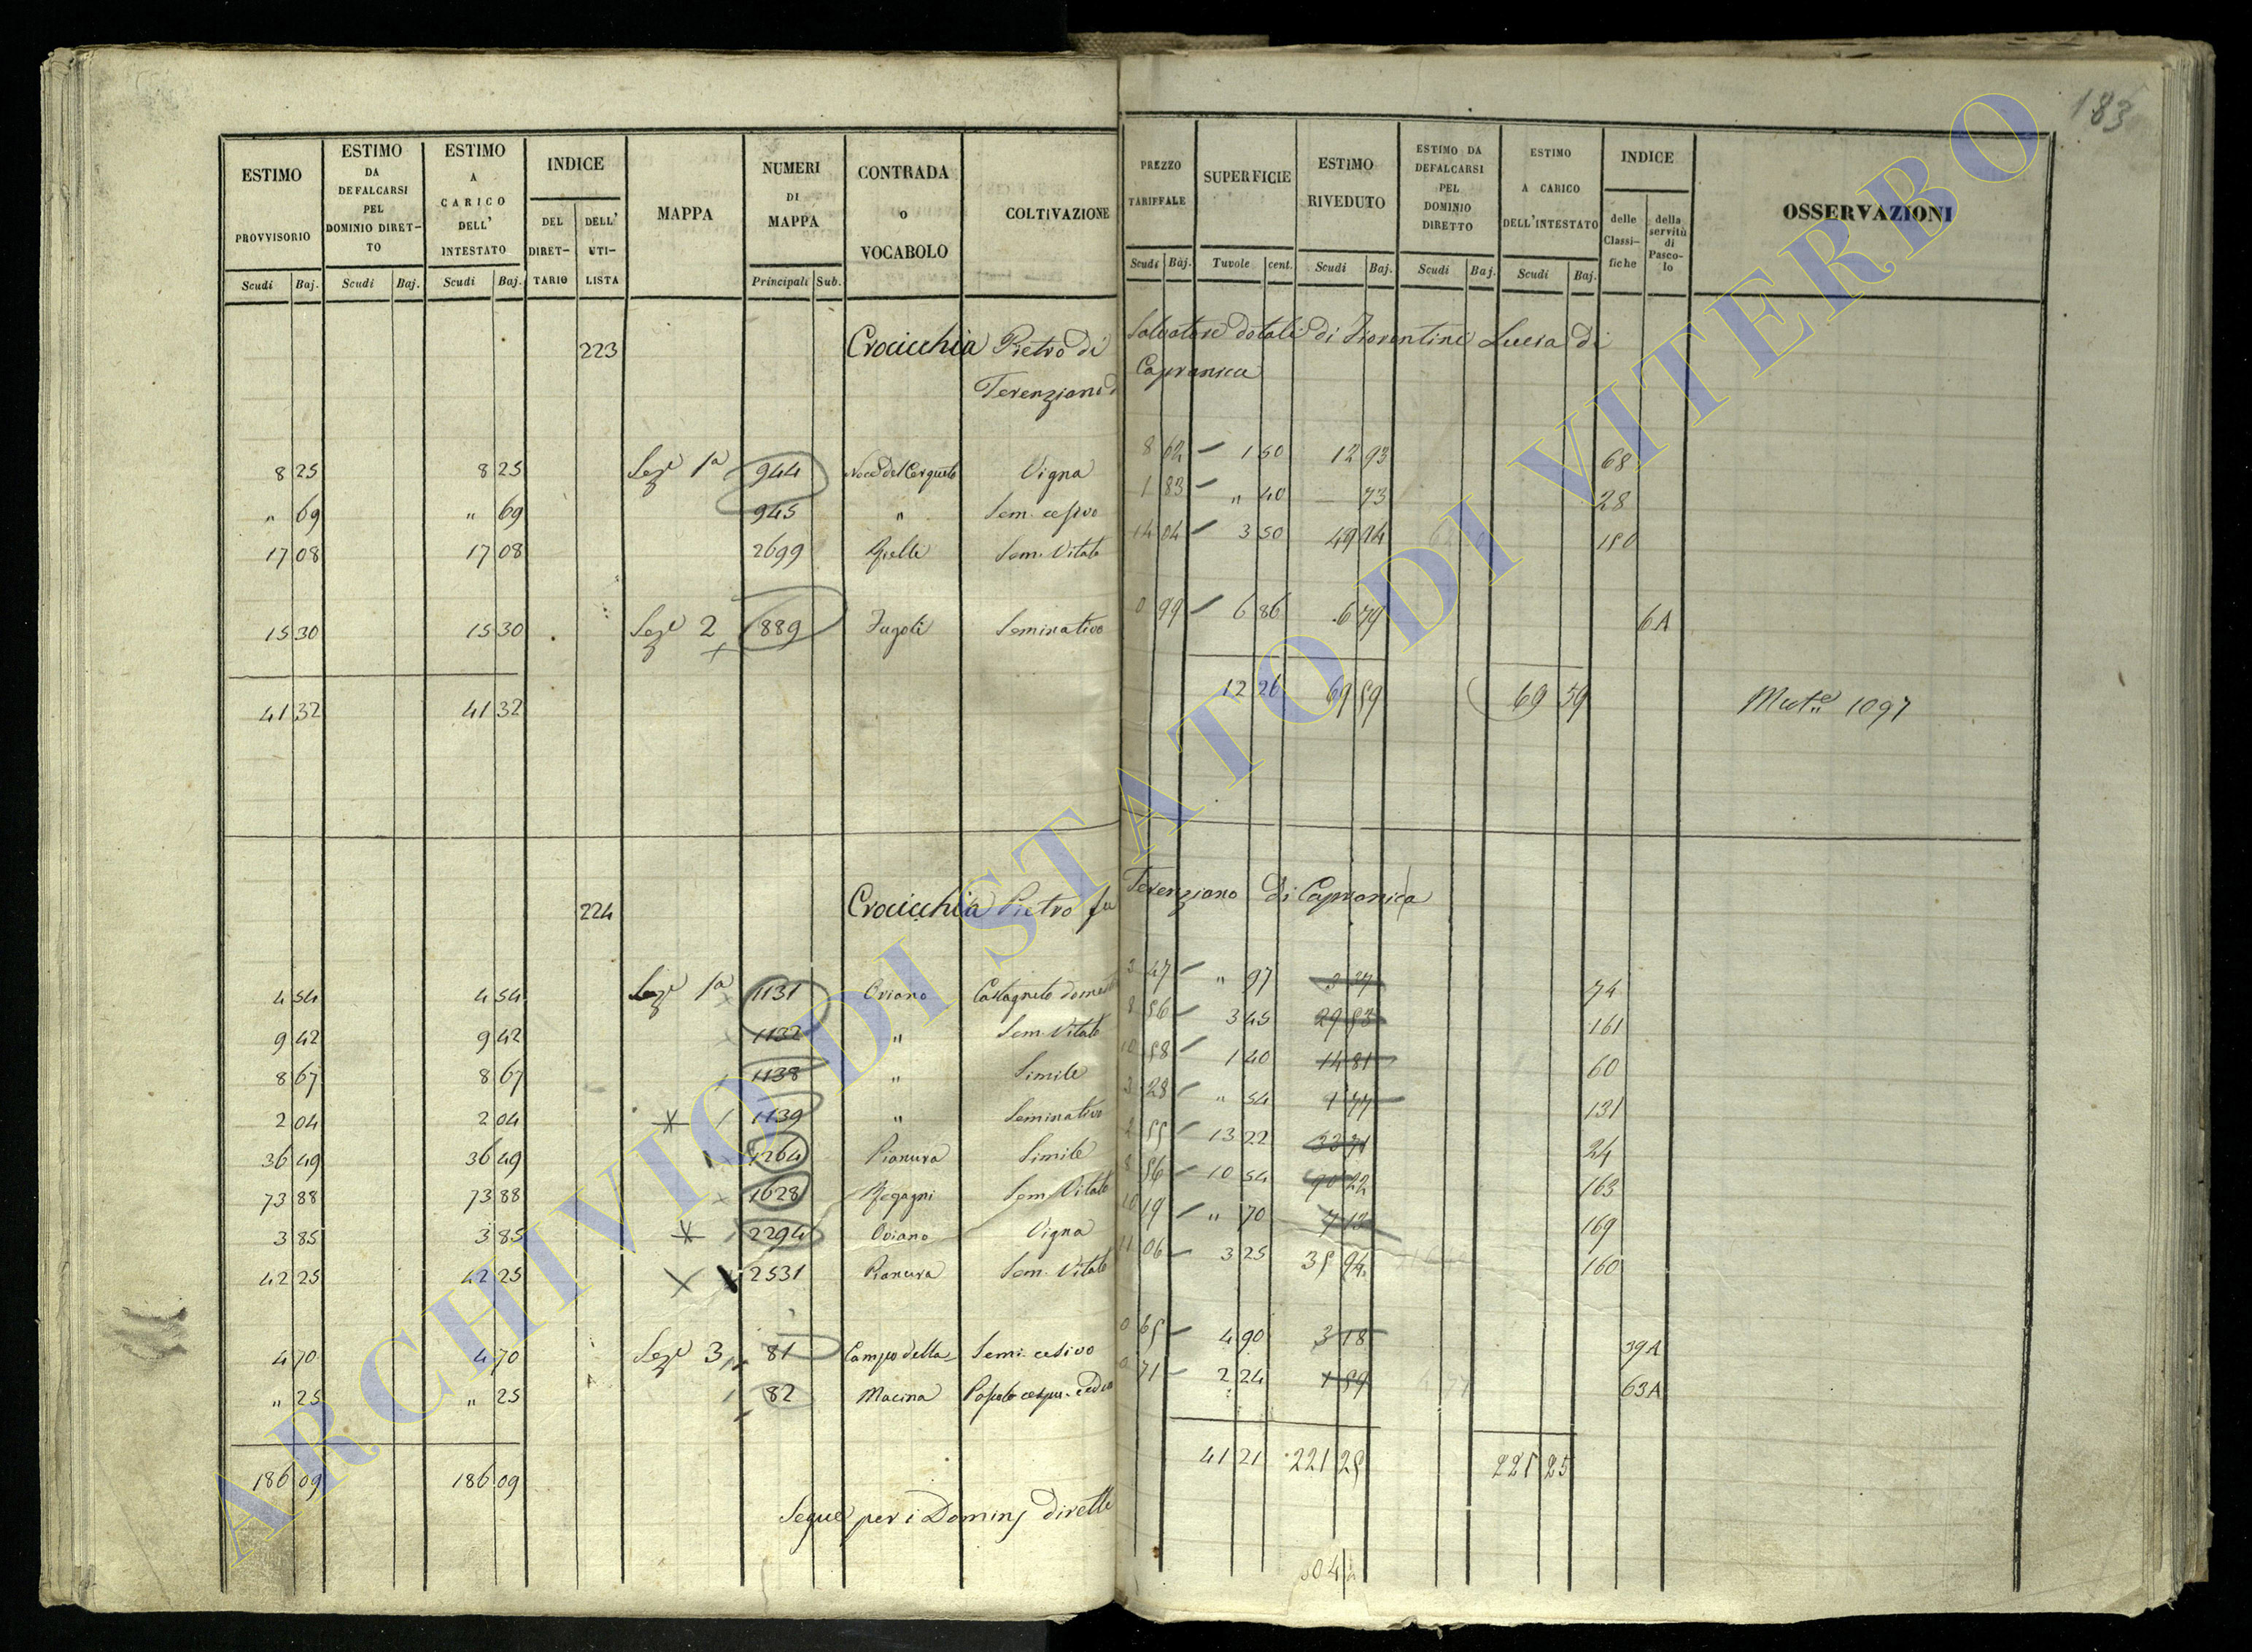 183
ESTIMO PROVVISORIO
ESTIMO DA DEFALCARSI PEL DOMINIO DIRET-TO
ESTIMO A CARICO DELL' INTESTATO
INDICE
DEL DIRET-TARIO
DELL' UTI-LISTA
MAPPA
NUMERI DI MAPPA
CONTRADA o VOCABOLO
COLTIVAZIONE
PREZZO TARIFFALE
SUPERFICIE
ESTIMO RIVEDUTO
ESTIMO DA DEFALCARSI PEL DOMINIO DIRETTO
ESTIMO A CARICO DELL'INTESTATO
INDICE
delle Classi-fiche
della servitù di Pasco-lo
OSSERVAZIONI
Scudi Baj. Scudi Baj. Scudi Baj. Principali Sub. Scudi Baj. Tavole cent. Scudi Baj. Scudi Baj. Scudi Baj.
223 Crocicchia Pietro di Salvatore dotali di Fiorentini Lucia di
Terenziano Capranica
8 25 8 25 Seze 1a 944 Vigna 8 62 1 50 12 93 68
" 69 " 69 945 " 1 83 " 40 73 28
17 08 17 08 2699 Sem. Vitato 14 04 3 50 49 14
15 30 15 30 Seze 2 889 Fugoli Seminativo 0 99 6 86 6 79 6A
41 32 41 32 12 26 69 59 69 59 Mute 1097
224 Crocicchia Pietro fu Terenziano di Capranica
4 54 4 54 Seze 1a 1131 Oviano Castagneto 3 47 " 97 3 37 74
9 42 9 42 1132 " Sem. Vitato 8 56 3 45 29 53 161
8 67 8 67 1138 " Simile 10 58 1 40 14 81 60
2 04 2 04 1139 " Seminativo 3 28 " 54 1 77 131
36 49 36 49 1264 Pianura Simile 2 55 13 22 33 71 24
73 88 73 88 1628 Sem. Vitato 8 56 10 54 90 22 163
3 85 3 85 2294 Oviano Vigna 10 19 " 70 7 13 169
42 25 42 25 2531 Pianura Sem. Vitato 11 06 3 25 35 94 160
4 70 4 70 Seze 3 81 Campo della Semi. cesivo 0 65 4 90 3 18 39A
" 25 " 25 82 Macina 0 71 2 24 1 59 63A
186 09 186 09 41 21 221 25 221 25
Segue per i Dominj diretti
ARCHIVIO DI STATO DI VITERBO